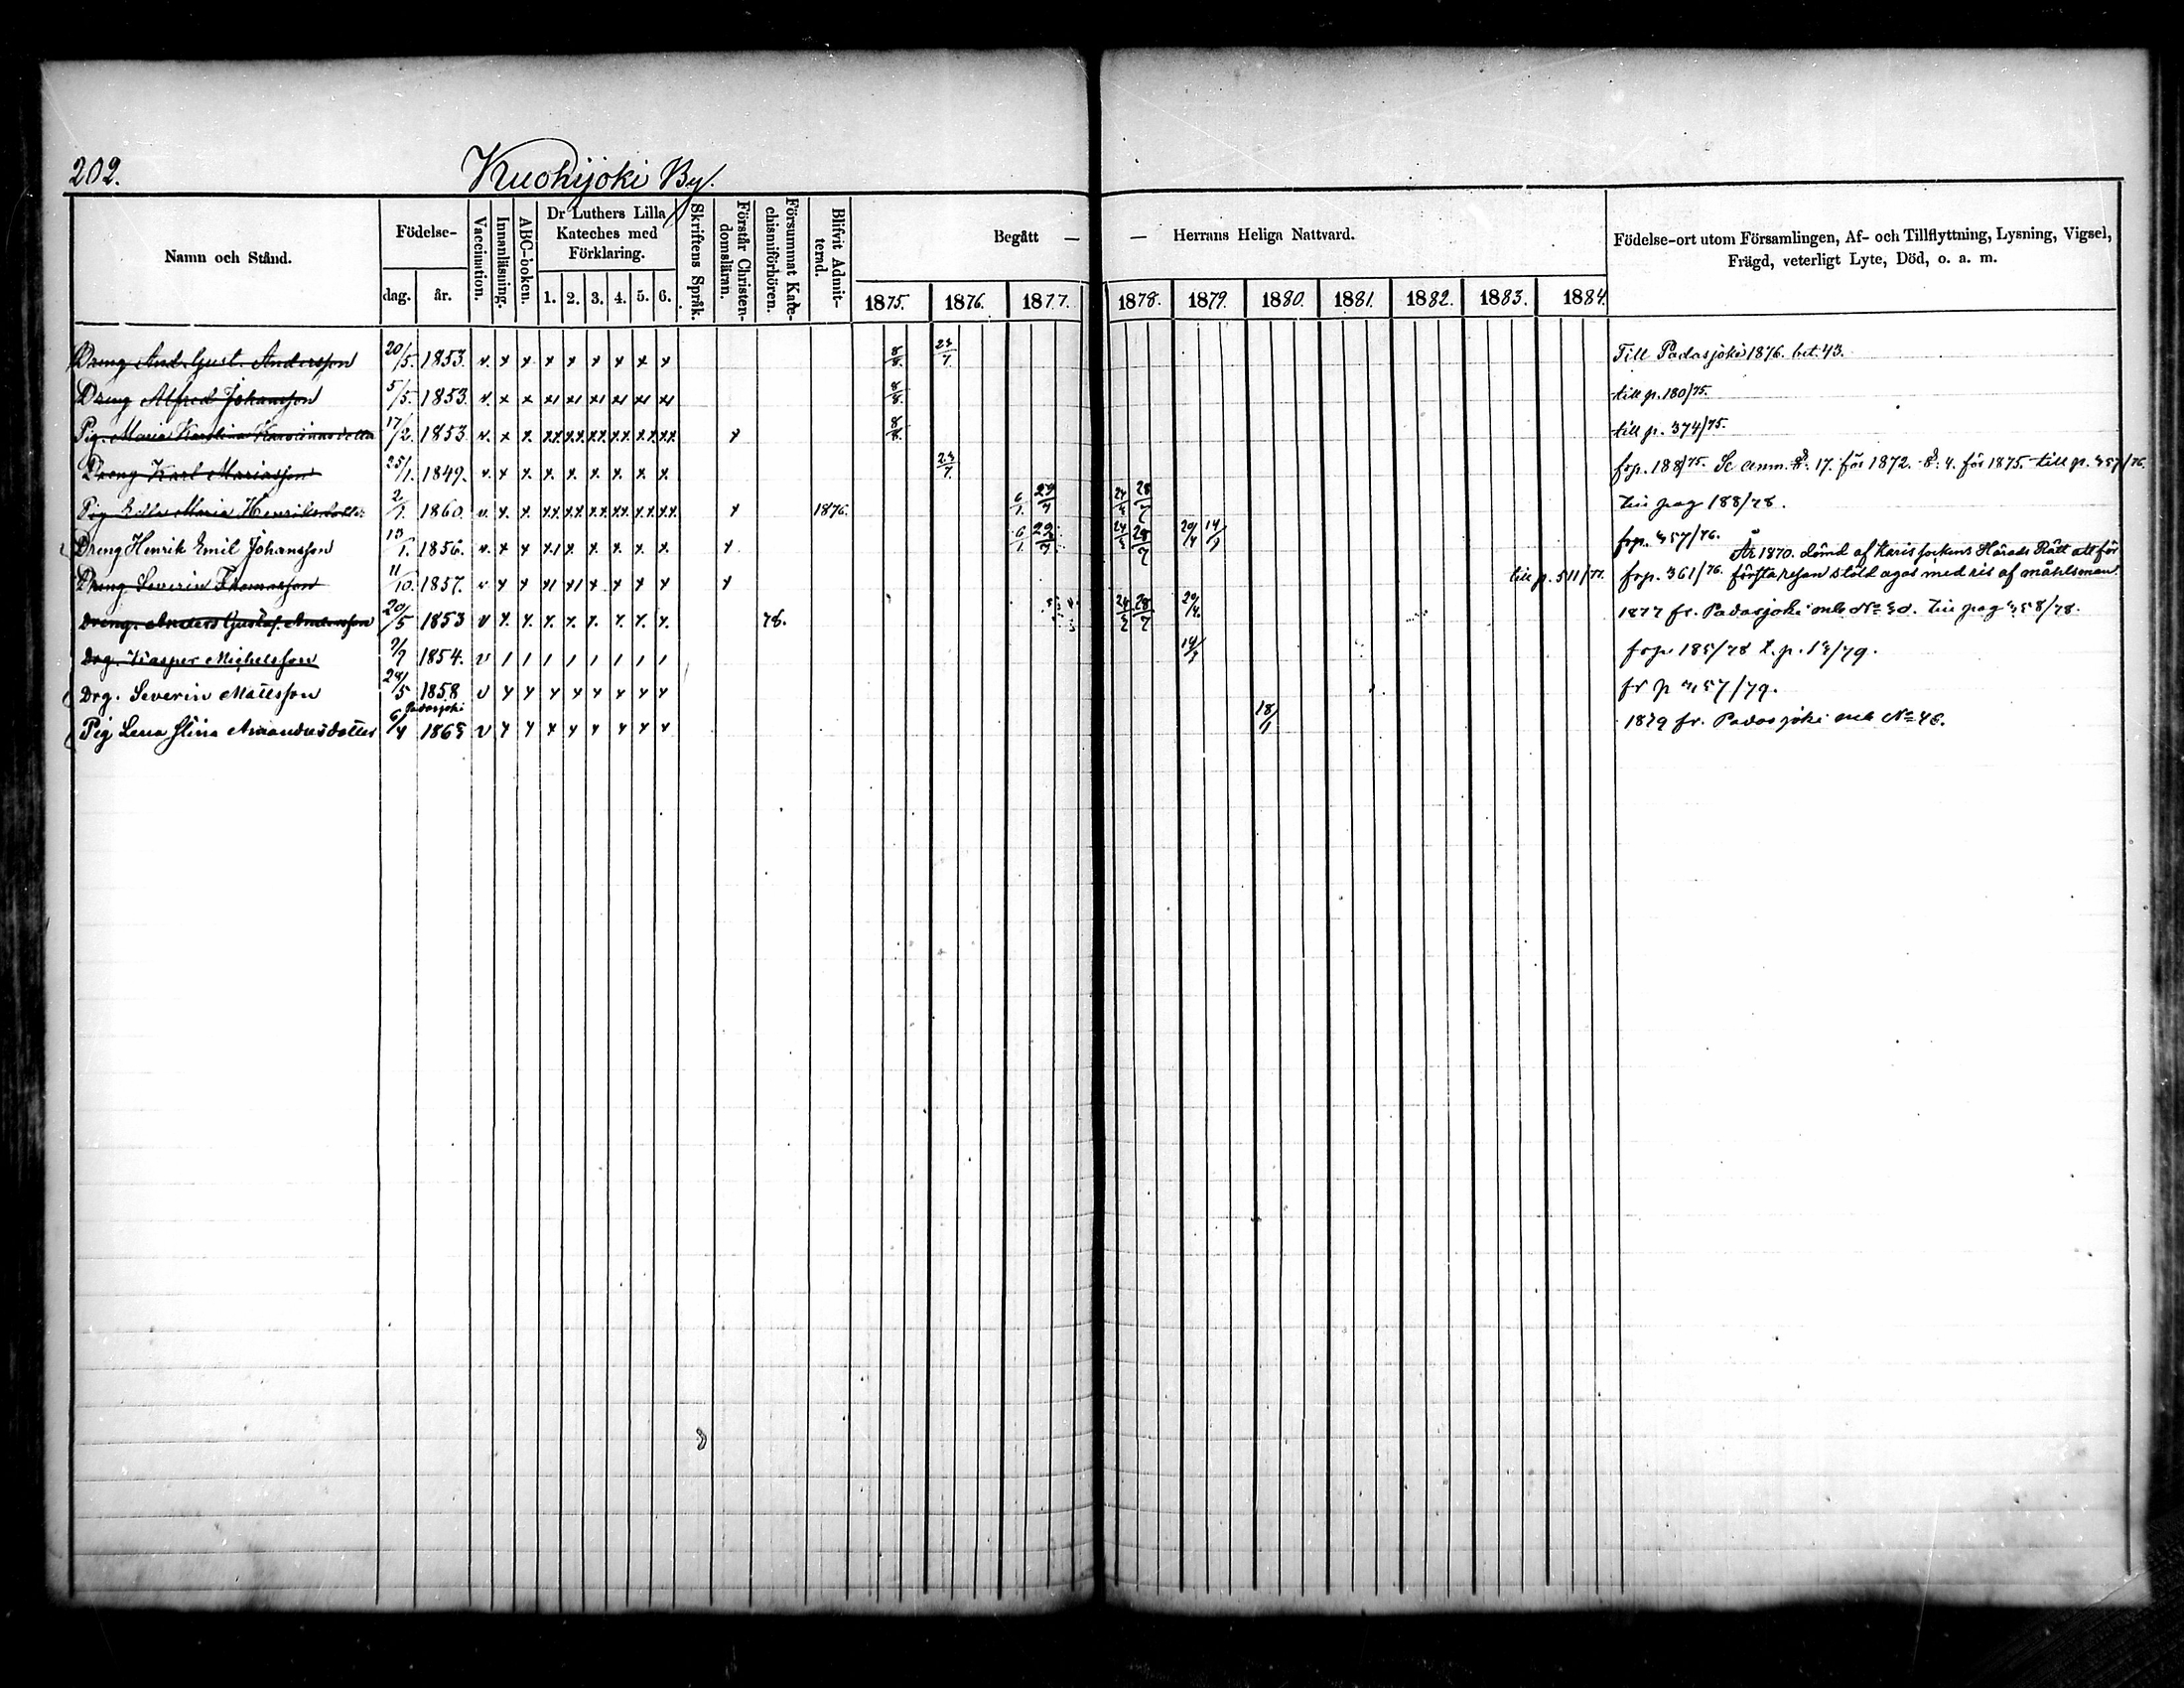 202.
Kuohijoki By.
Namn och Stånd.
Födelse-
dag. år.
Vaccination.
Innanläsning.
ABC-boken.
Dr Luthers Lilla Kateches med Förklaring.
1. 2. 3. 4. 5. 6.
Skriftens Språk.
Förstår Christendomsläran.
Försummat Katechismiförhören.
Blifvit Admitterad.
Begått — — Herrans Heliga Nattvard.
1875. 1876. 1877. 1878. 1879. 1880. 1881. 1882. 1883. 1884.
Födelse-ort utom Församlingen, Af- och Tillflyttning, Lysning, Vigsel, Frägd, veterligt Lyte, Död, o. a. m.
Dreng And. Gust. Andersson 20/5. 1853. v. x x x x x x x x 8/8. 23/7. Till Padasjoki 1876. bet. 43.
Dreng Alfred Johansson 5/5. 1853. v. x x x x x x x x 8/8. till p. 180/75.
Pig. Maria Karolina 17/2. 1853. v. x x xx xx xx xx xx xx x 8/8. till p. 374/75.
Dreng Karl Mariasson 25/1. 1849. v. x x. x. x. x. x. x. x. 23/7. frp. 188/75. Se Anm. 17. för 1872. 4. för 1875. till p. 357/76.
Pig Maria Henriksdotter 2/1. 1860. v. x. x. xx xx xx xx xx xx x 1876. 6/1. 28/7 till pag 188/78.
Dreng Henrik Emil Johansson 13/1. 1856. v. x x x x. x. x. x. x. x 6/1. 28/7 29/4 14/9 frp. 357/76.
År 1870. dömd af Karis sockens Härads Rätt att för
Dreng Severin Thomasson 11/10. 1857. v x x x x x x x x x till p. 511/77. frp. 361/76. första resan stöld agas med ris af målsman.
Dreng. Anders Gustaf Andersson 20/5 1853 v x. x. x. x. x. x. x. x. 78. 28/7 29/4. 1877 fr. Padasjoki mb No 30. till pag 358/78.
Drg. Kasper Michelsson 9/9 1854. v / / / / / / / / 14/9 frp 185/78 t. p. 13/79.
Drg. Severin Mattsson 28/5 1858 v x x x x x x x x fr p 357/79.
Padasjoki
Pig Lena Stina Amandusdotter 6/4 1863 v x x x x x x x x 18/1 1879 fr. Padasjoki mb No 48.